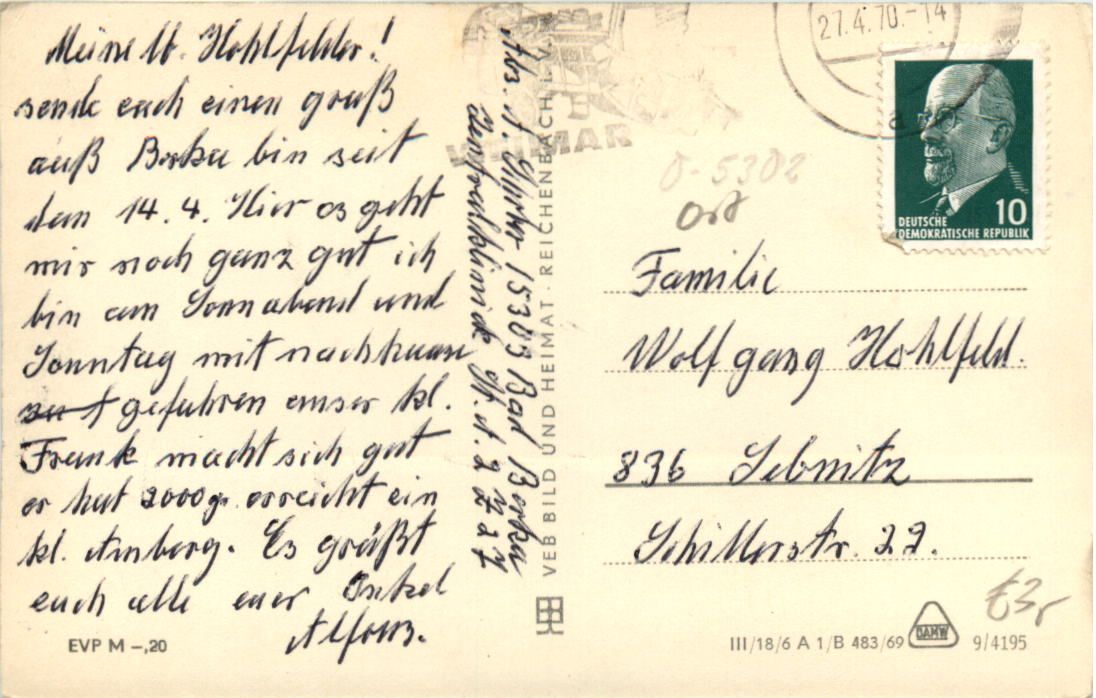 Meine lb. Hohlfelder!
sende euch einen gruß
auß Berka bin seit
dem 14. 4. Hier es geht
mir noch ganz gut ich
bin am Sonnabend und
Sonntag mit nachhause
gefuhren unser kl.
Frank macht sich gut
er hat 2000g. erreicht ein
kl. Amberg. Es grüßt
euch alle euer Onkel
Alfons.
EVP M –,20
Abs. A. 5303 Bad Berka
Zentralklinik St. 2 Z 27
VEB BILD UND HEIMAT · REICHENBACH I. V.
WEIMAR
27.4.70.-14
DEUTSCHE
DEMOKRATISCHE REPUBLIK
10
0-5302
Ort
Familie
Wolfgang Hohlfeld.
836 Sebnitz
Schillerstr. 22.
£3
III/18/6 A 1/B 483/69
DAMW
9/4195